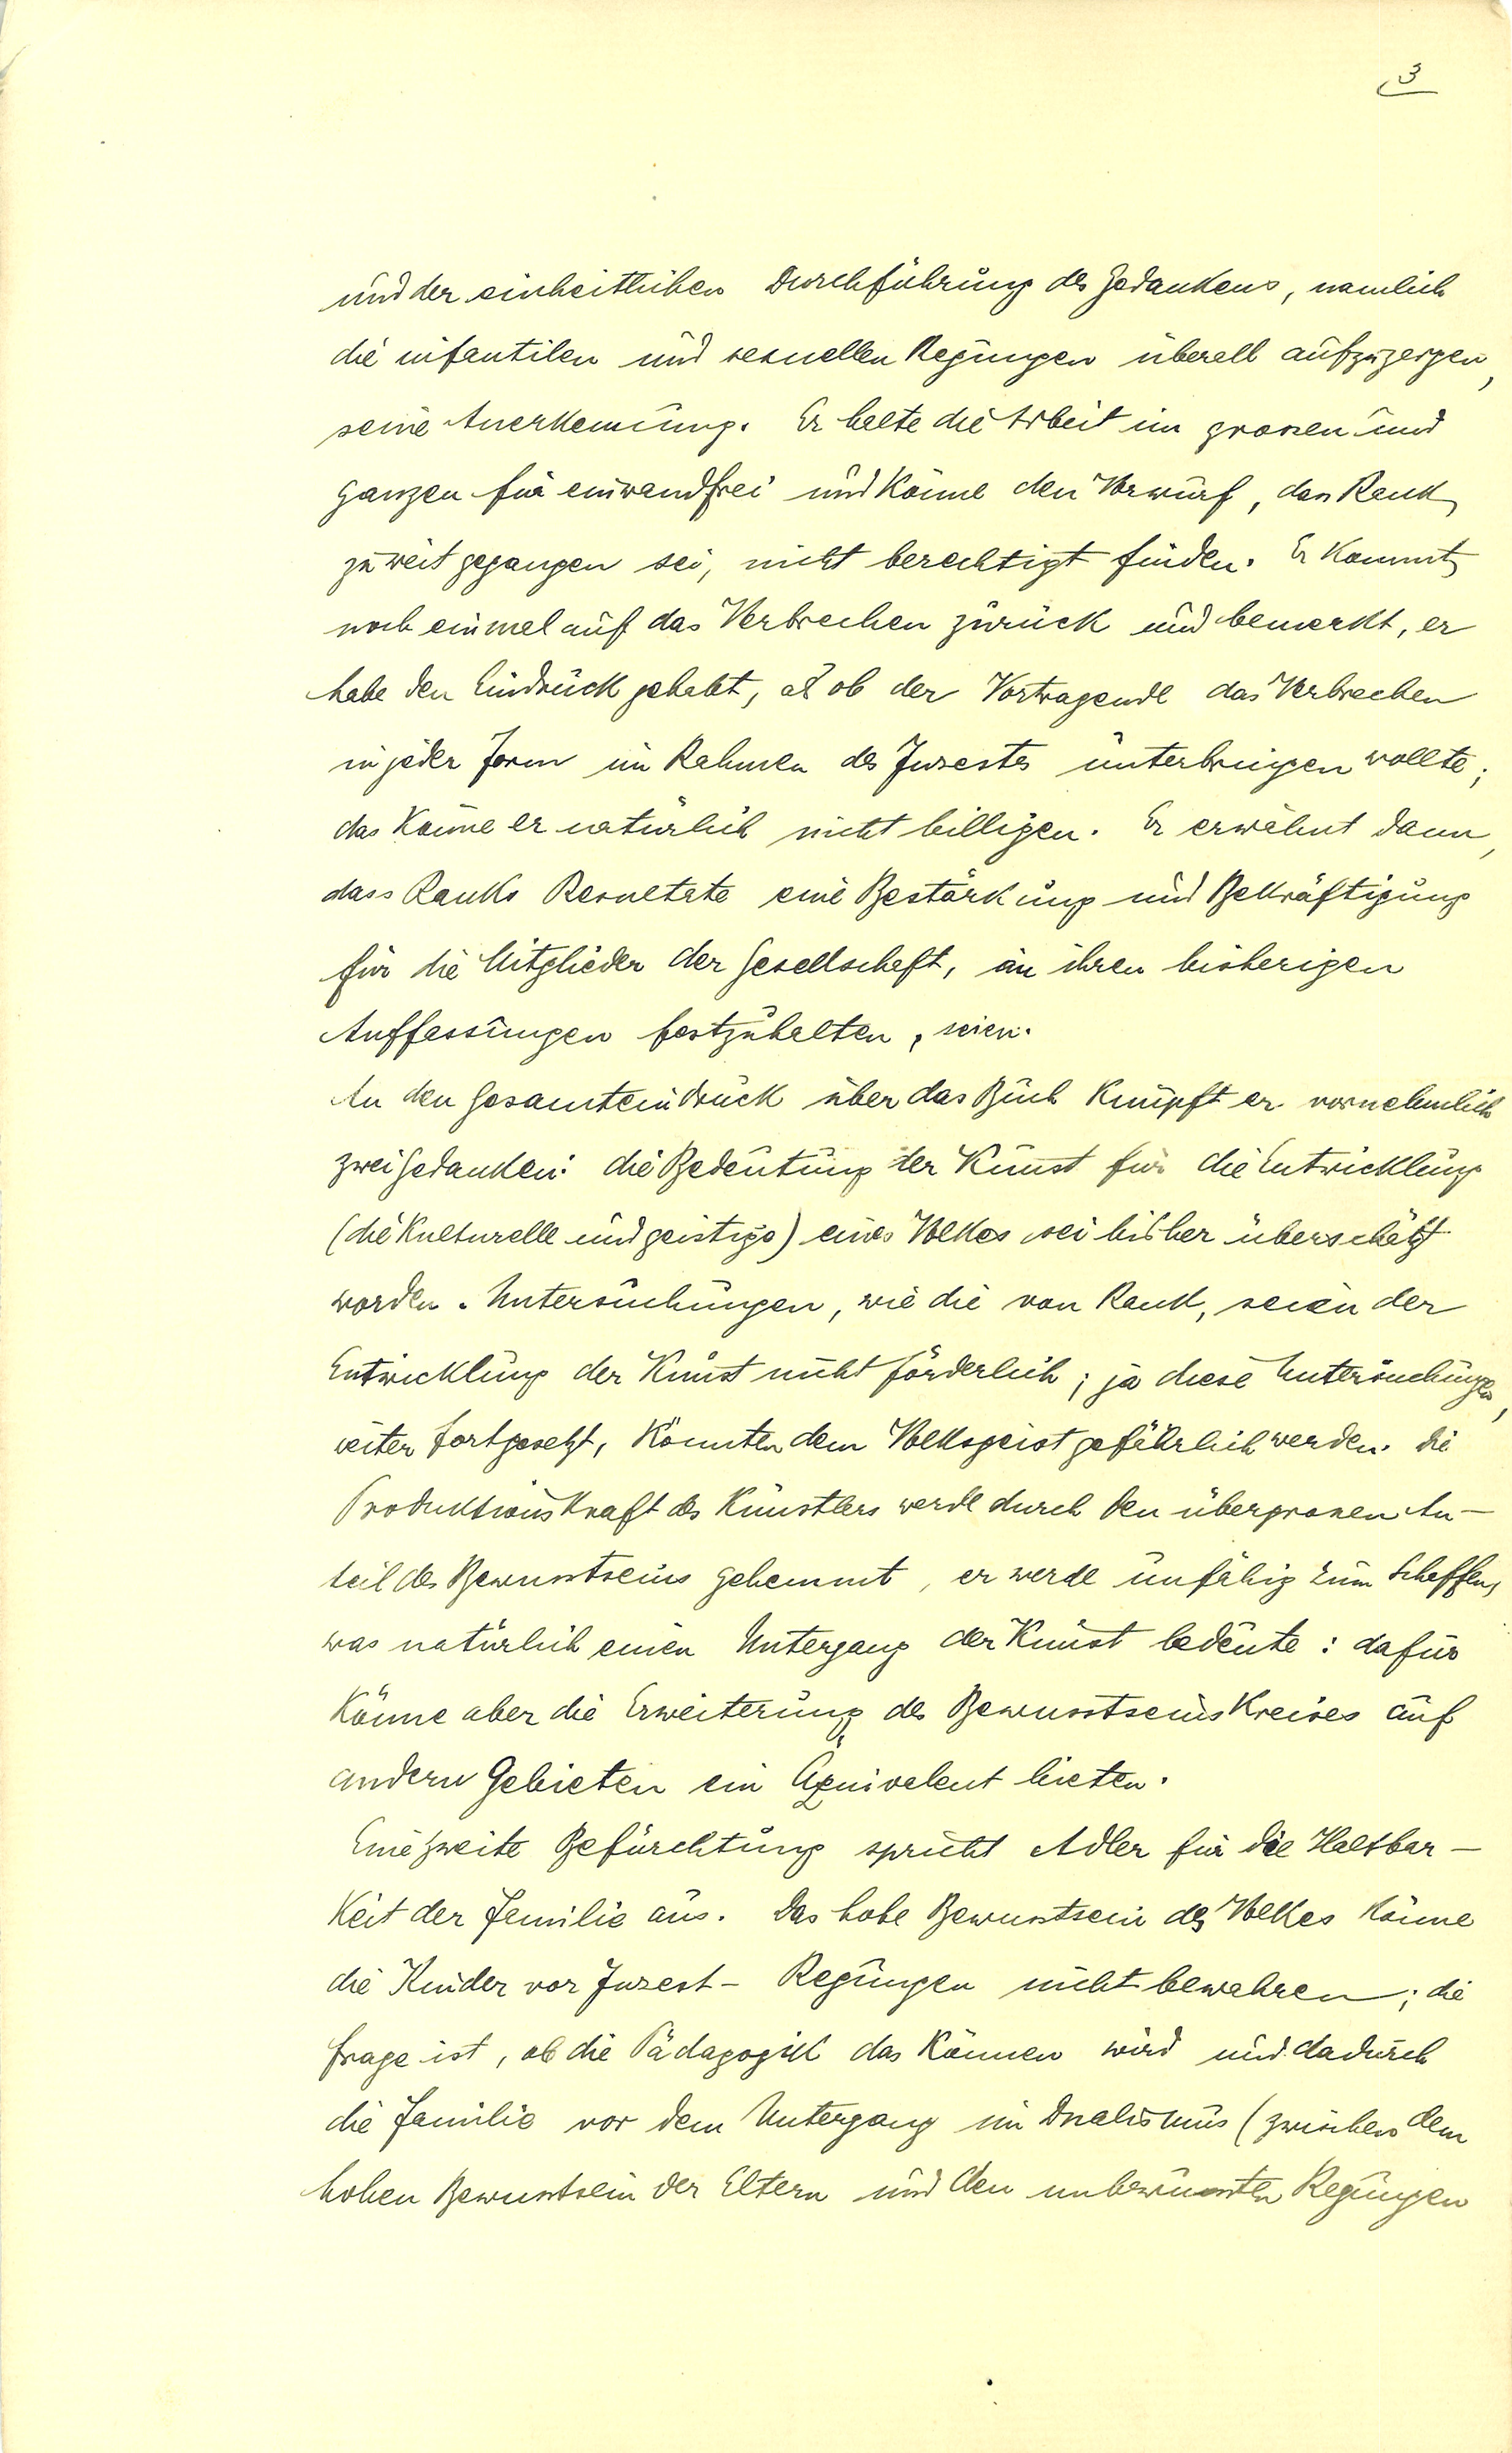 3
und der einheitlichen Durchführung des Gedankens, namlich
die infantilen und sexuellen Regungen überall aufzuzeigen,
seine Anerkennung. Er halte die Arbeit im grossen und
ganzen für einwandfrei und könne den Vorwurf, dass Rank
zu weit gegangen sei, nicht berechtigt finden. Er kommt
noch einmal auf das Verbrechen zurück und bemerkt, er
habe den Eindruck gehabt, als ob der Vortragende das Verbrechen
in jeder Form im Rahmen des Inzestes unterbringen wollte;
das könne er natürlich nicht billigen. Er erwähnt dann,
dass Ranks Resultate eine Bestärkung und Bekräftigung
für die Mitglieder der Gesellschaft, an ihren bisherigen
Auffassungen festzuhalten, seien.
An den Gesamteindruck über das Buch knüpft er vornehmlich
zwei Gedanken: die Bedeutung der Kunst für die Entwicklung
(die kulturelle und geistige) eines Volkes sei bisher überschätzt
worden. Untersuchungen, wie die von Rank, seien der
Entwicklung der Kunst nicht förderlich; ja diese Untersuchungen,
weiter fortgesetzt, könnten dem Volksgeist gefährlich werden. Die
Produktionskraft des Künstlers werde durch den übergrossen An-
teil des Bewusstseins gehemmt, er werde unfähig zum Schaffen,
was natürlich einen Untergang der Kunst bedeute: dafür
könne aber die Erweiterung des Bewusstseinskreises auf
andern Gebieten ein Äquivalent bieten.
Eine zweite Befürchtung spricht Adler für die Haltbar-
keit der Familie aus. Das hohe Bewusstsein des Volkes könne
die Kinder vor Inzest- Regungen nicht bewahren; die
Frage ist, ob die Pädagogik das können wird und dadurch
die Familie vor dem Untergang im Dualismus (zwischen dem
hohen Bewusstsein der Eltern und den unbewussten Regungen